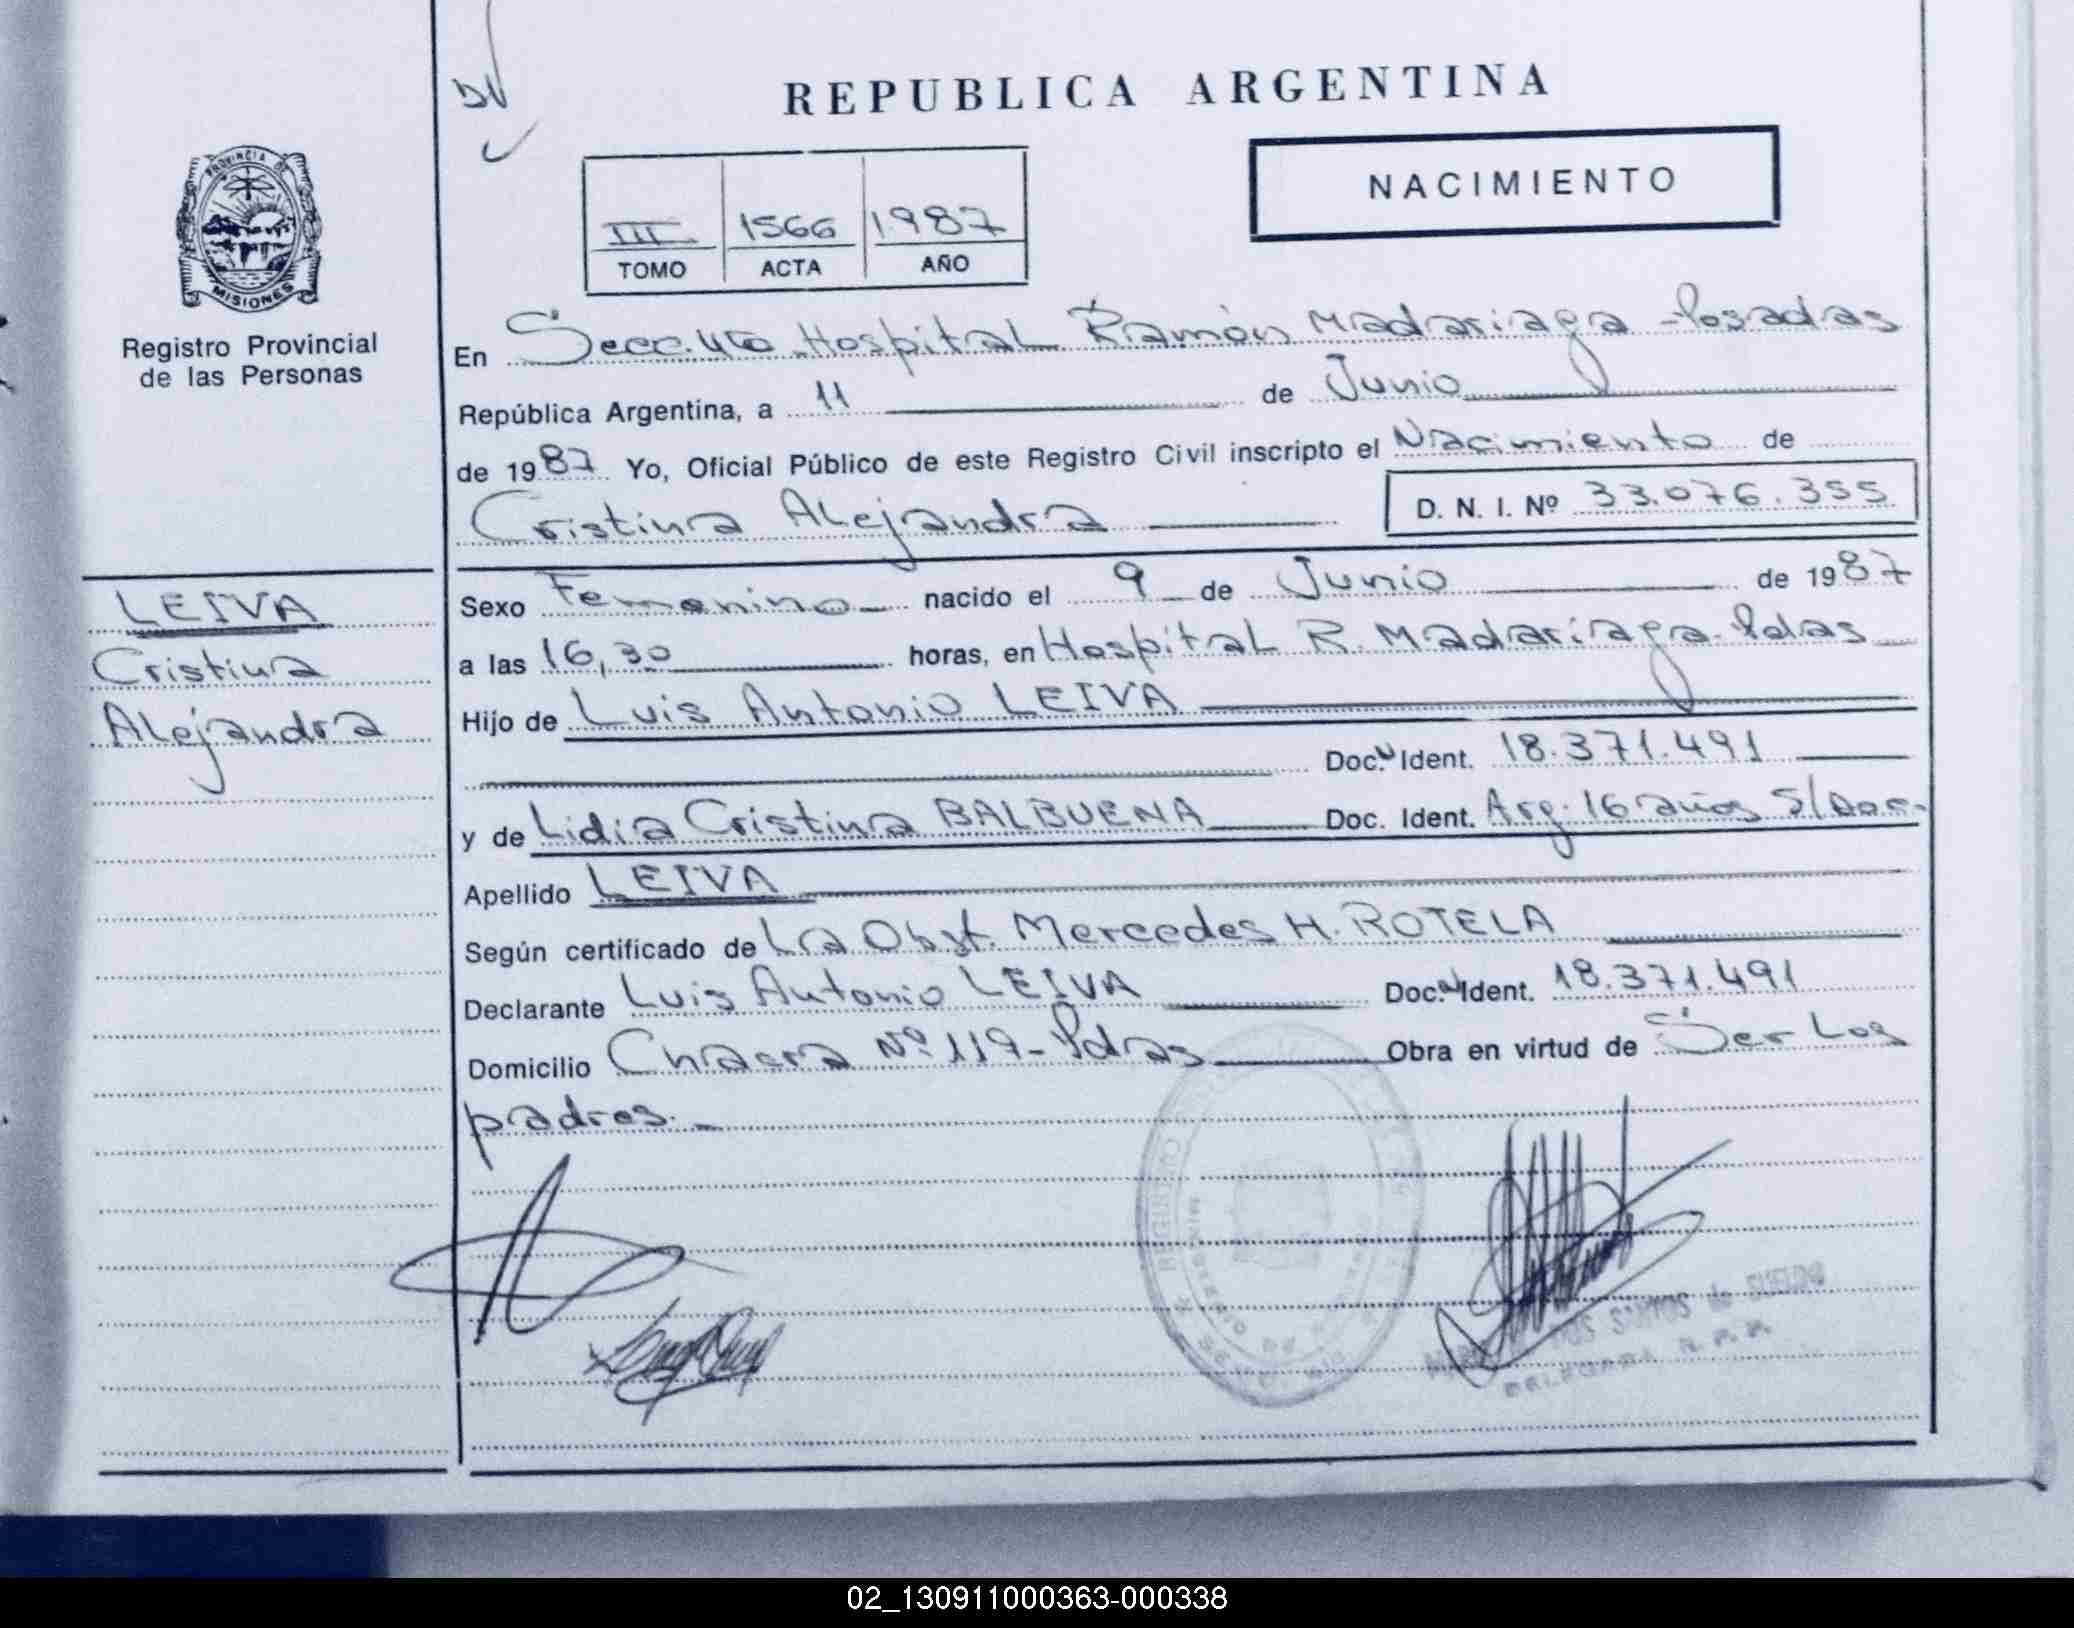 REPUBLICA ARGENTINA
NACIMIENTO
III 1566 1987
TOMO ACTA AÑO
PROVINCIA DE
MISIONES
Registro Provincial
de las Personas
En Hospital Ramón Madariaga - Posadas
República Argentina, a 11 de Junio
de 1987 Yo, Oficial Público de este Registro Civil inscripto el Nacimiento de
Cristina Alejandra D. N. I. Nº 33.076.355
LEIVA
Cristina
Alejandra
Sexo Femenino nacido el 9 de Junio de 1987
a las 16,30 horas, en Hospital R. Madariaga - Pdas
Hijo de Luis Antonio LEIVA
Doc. Ident. 18.371.491
y de Lidia Cristina BALBUENA Doc. Ident. Arg. 16 años S/Doc.
Apellido LEIVA
Según certificado de La Obst. Mercedes H. ROTELA
Declarante Luis Antonio LEIVA Doc. Ident. 18.371.491
Domicilio Chacra Nº 119 - Pdas Obra en virtud de Ser Los
padres.
02_130911000363-000338